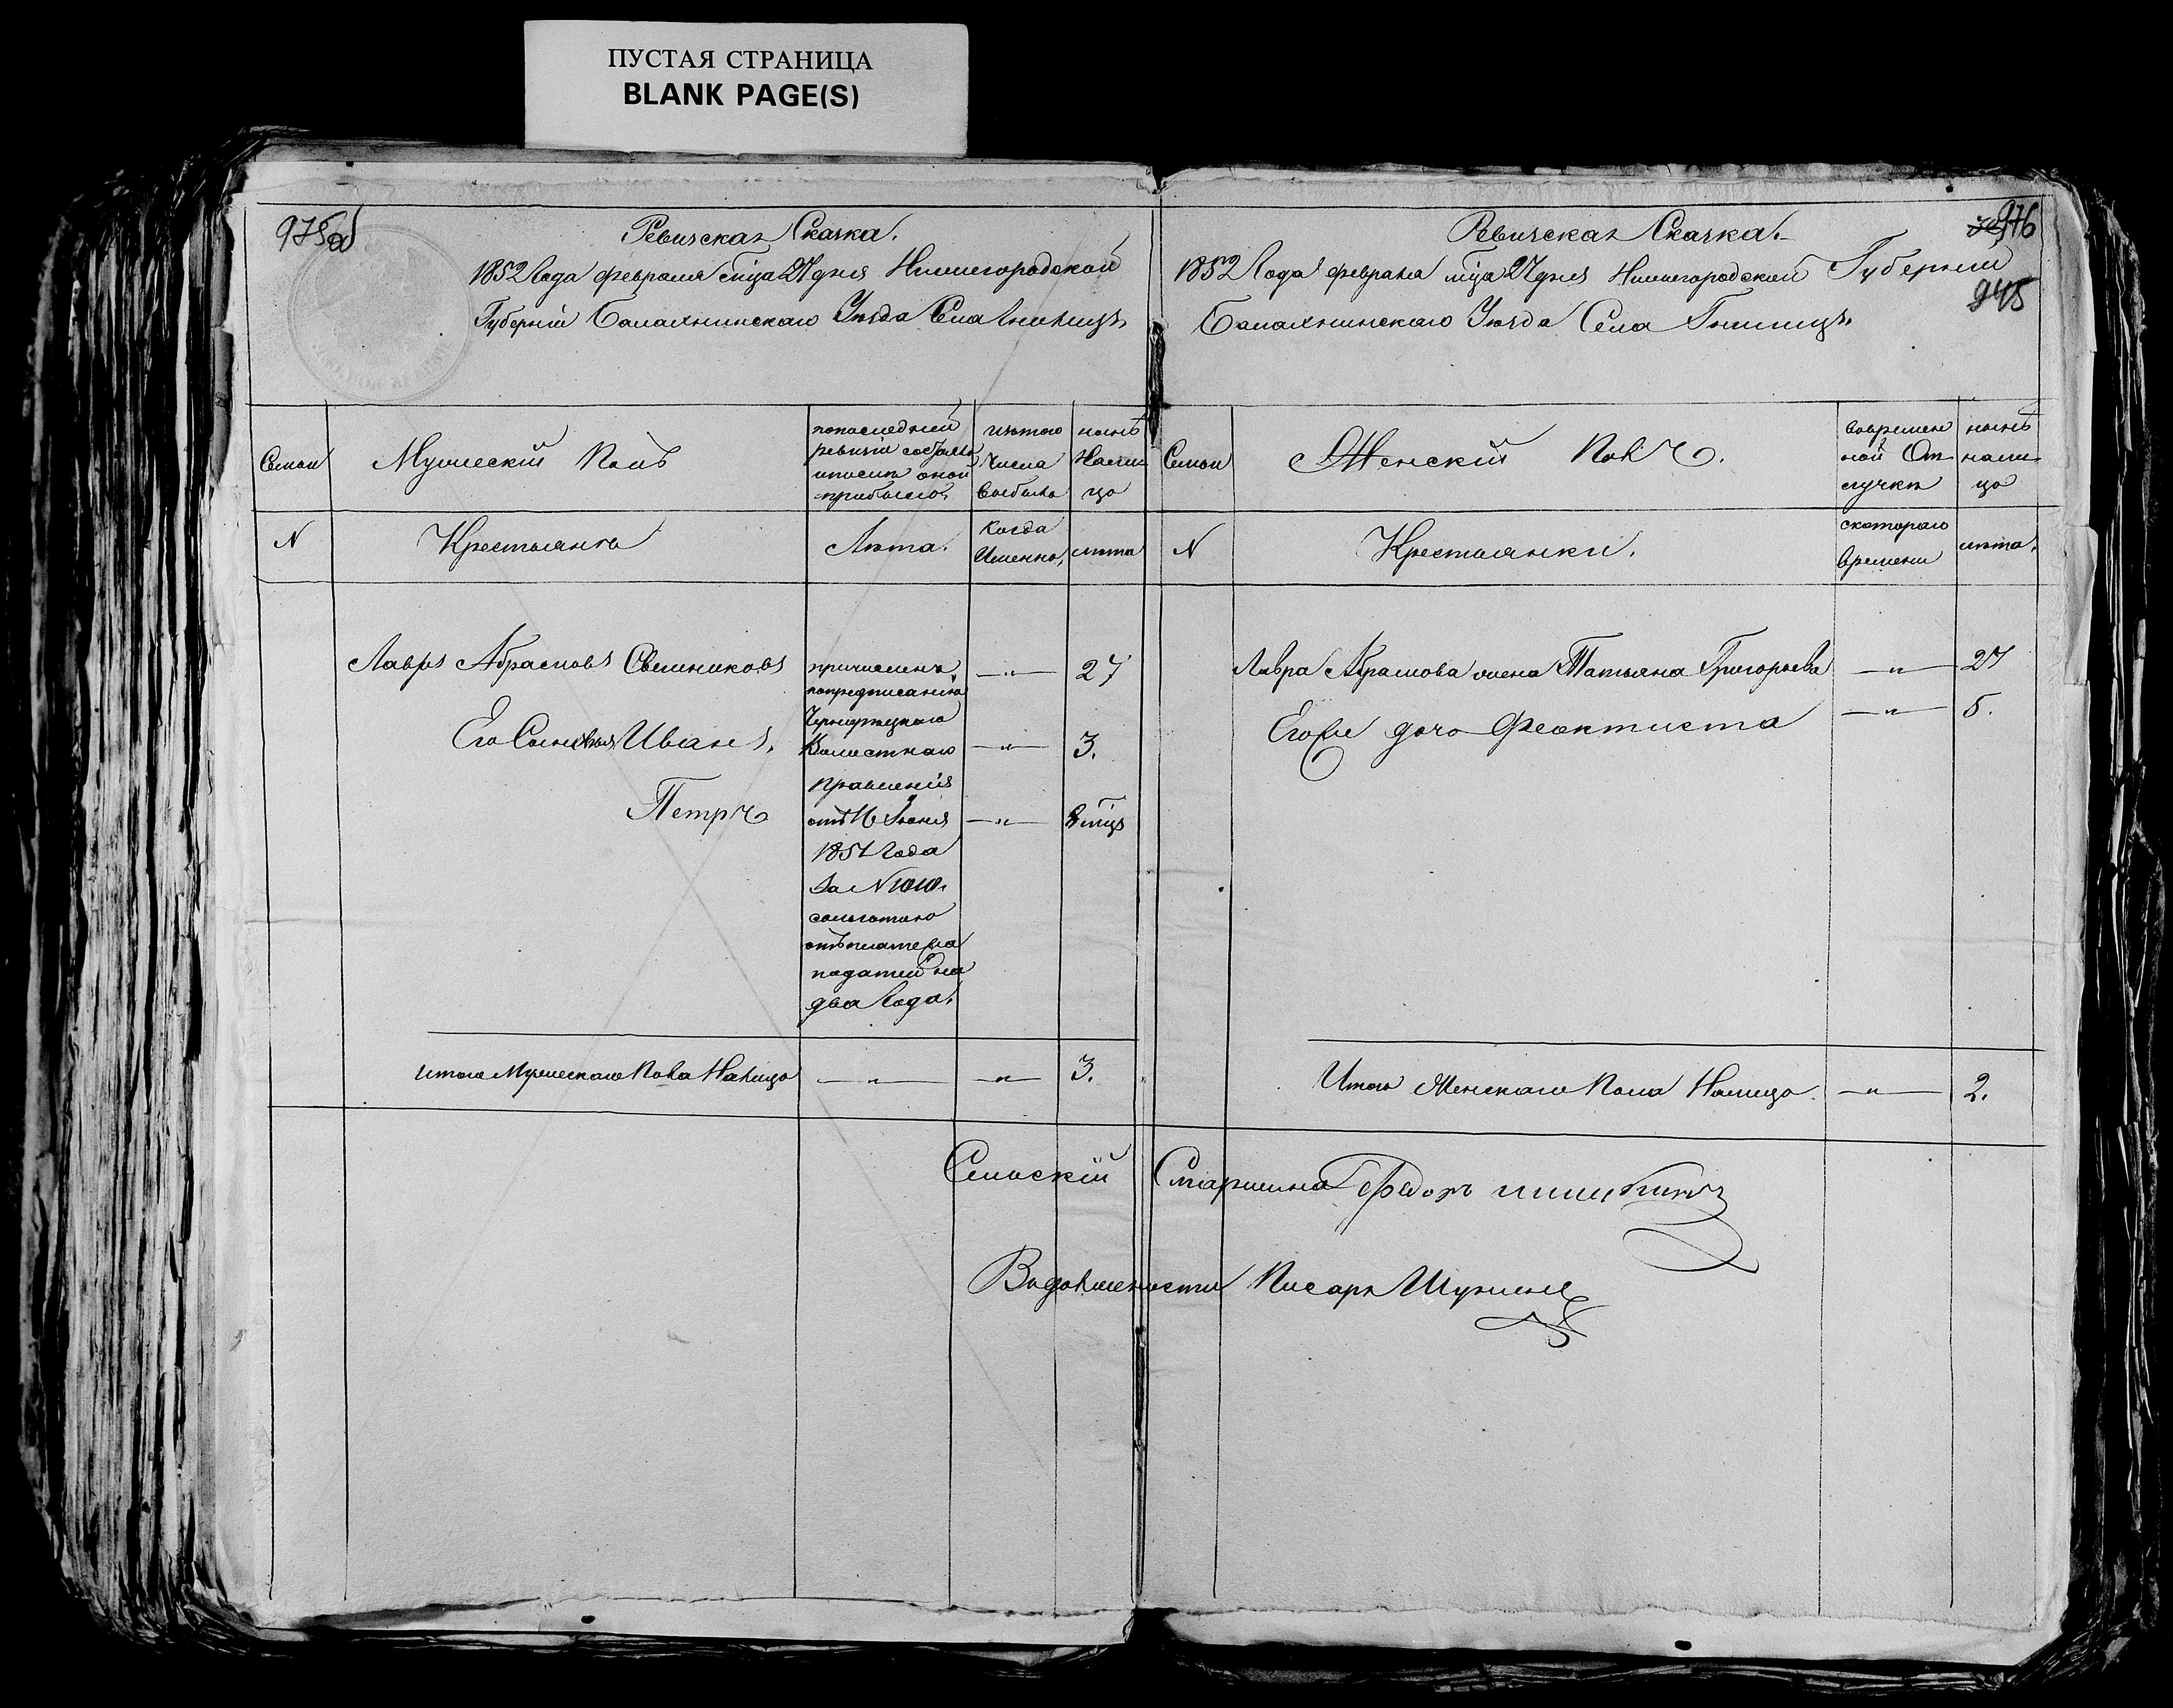 ПУСТАЯ СТРАНИЦА
BLANK PAGE(S)
975об
Ревизская Сказка.
1852 Года февраля м̃ца 27 дня Нижегородской
Губерніи Балахнинскаго Уѣзда Села Гнилицъ
Семьи
Мужескій Полъ
попоследней
ревизіи состояло
ипослѣ оной
прибыло
изтого
Числа
выбыло
нынѣ
Нали-
цо
N
Крестьянъ
Лѣта.
Когда
Именно,
лѣта
Лавръ Абрамовъ Свешниковъ
причисленъ
попредписанію
Чернорѣцкаго
Волостнаго
Правленія
отъ 16 Іюня
1851 Года
за N 1010.
сольготою
отъ платежа
податей на
два Года.
—„— 27
Его Сыновья Иванъ,
—„— 3.
Петръ
—„— 8 м̃цъ
Итого Мужескаго Пола Налицо —„— —„— 3.
976
945
Ревизская Сказка.
1852 Года февраля м̃ца 27 дня Нижегородской Губерніи
Балахнинскаго Уѣзда Села Гнилицъ
Семьи
Женскій Полъ.
вовремен
ной От-
лучкѣ
нынѣ
нали-
цо
N
Крестьянки.
скотораго
времени
лѣта.
Лавра Абрамова жена Татьяна Григорьева —„— 27
Его дочь Феоктиста —„— 5.
Итого Женскаго Пола Налицо. —„— 2.
Сельскій Старшина Федоръ
Писарь